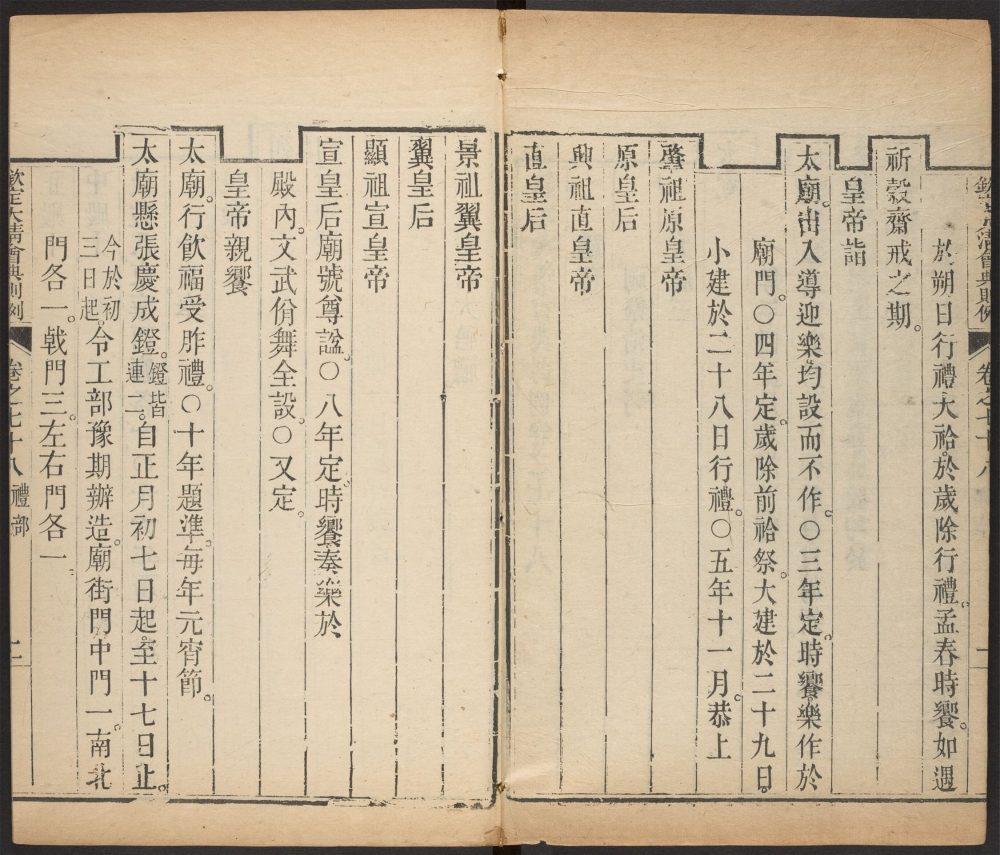 欽定大清會典則例 卷之七十八 一
於朔日行禮。大祫於歲除行禮。孟春時饗。如遇
祈穀齋戒之期。
皇帝詣
太廟。出入導迎樂。均設而不作。○三年定。時饗樂作於
廟門。○四年定。歲除前祫祭。大建於二十九日。
小建於二十八日行禮。○五年十一月。恭上
肇祖原皇帝
原皇后
興祖直皇帝
直皇后
景祖翼皇帝
翼皇后
顯祖宣皇帝
宣皇后廟號尊諡。○八年定。時饗奏樂於
殿內。文武佾舞全設。○又定。
皇帝親饗
太廟。行飲福受胙禮。○十年題準。每年元宵節。
太廟懸張慶成鐙。鐙皆連二。自正月初七日起。至十七日止。
今於初三日起。令工部豫期辦造。廟街門中門一。南北
門各一。戟門三。左右門各一。
欽定大清會典則例 卷之七十八 禮部 二